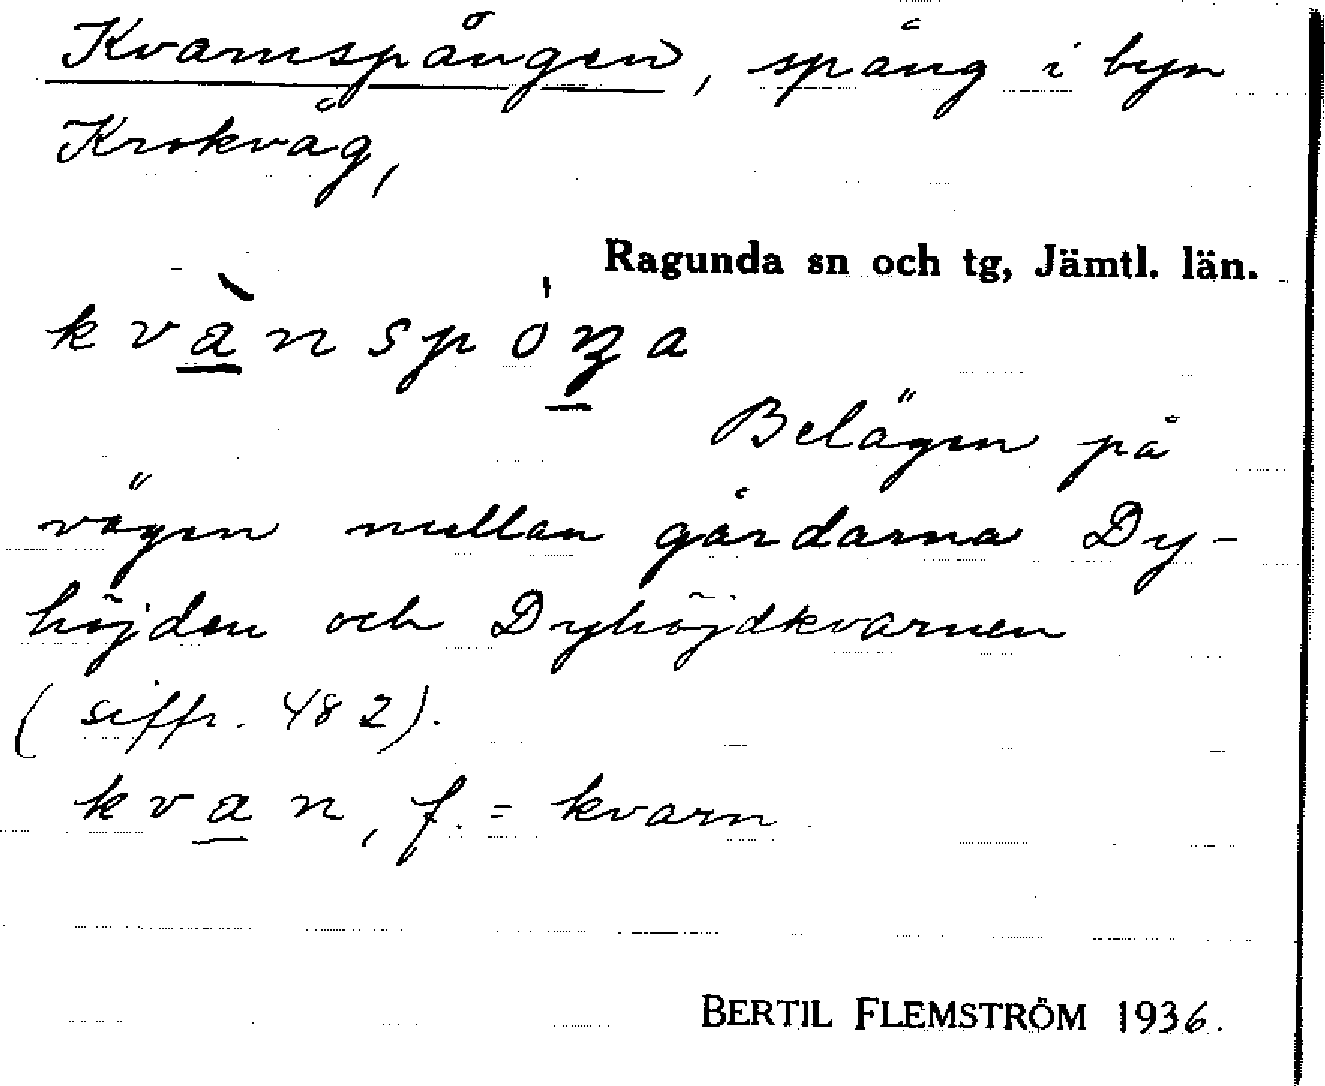 Kvarnspången, spång i byn
Krokvåg,
Ragunda sn och tg, Jämtl. län.
kvànspóŋa
Belägen på
vägen mellan gårdarna Dy-
höjden och Dyhöjdkvarnen
(siffr. 482).
kvan, f. = kvarn
BERTIL FLEMSTRÖM 1936.